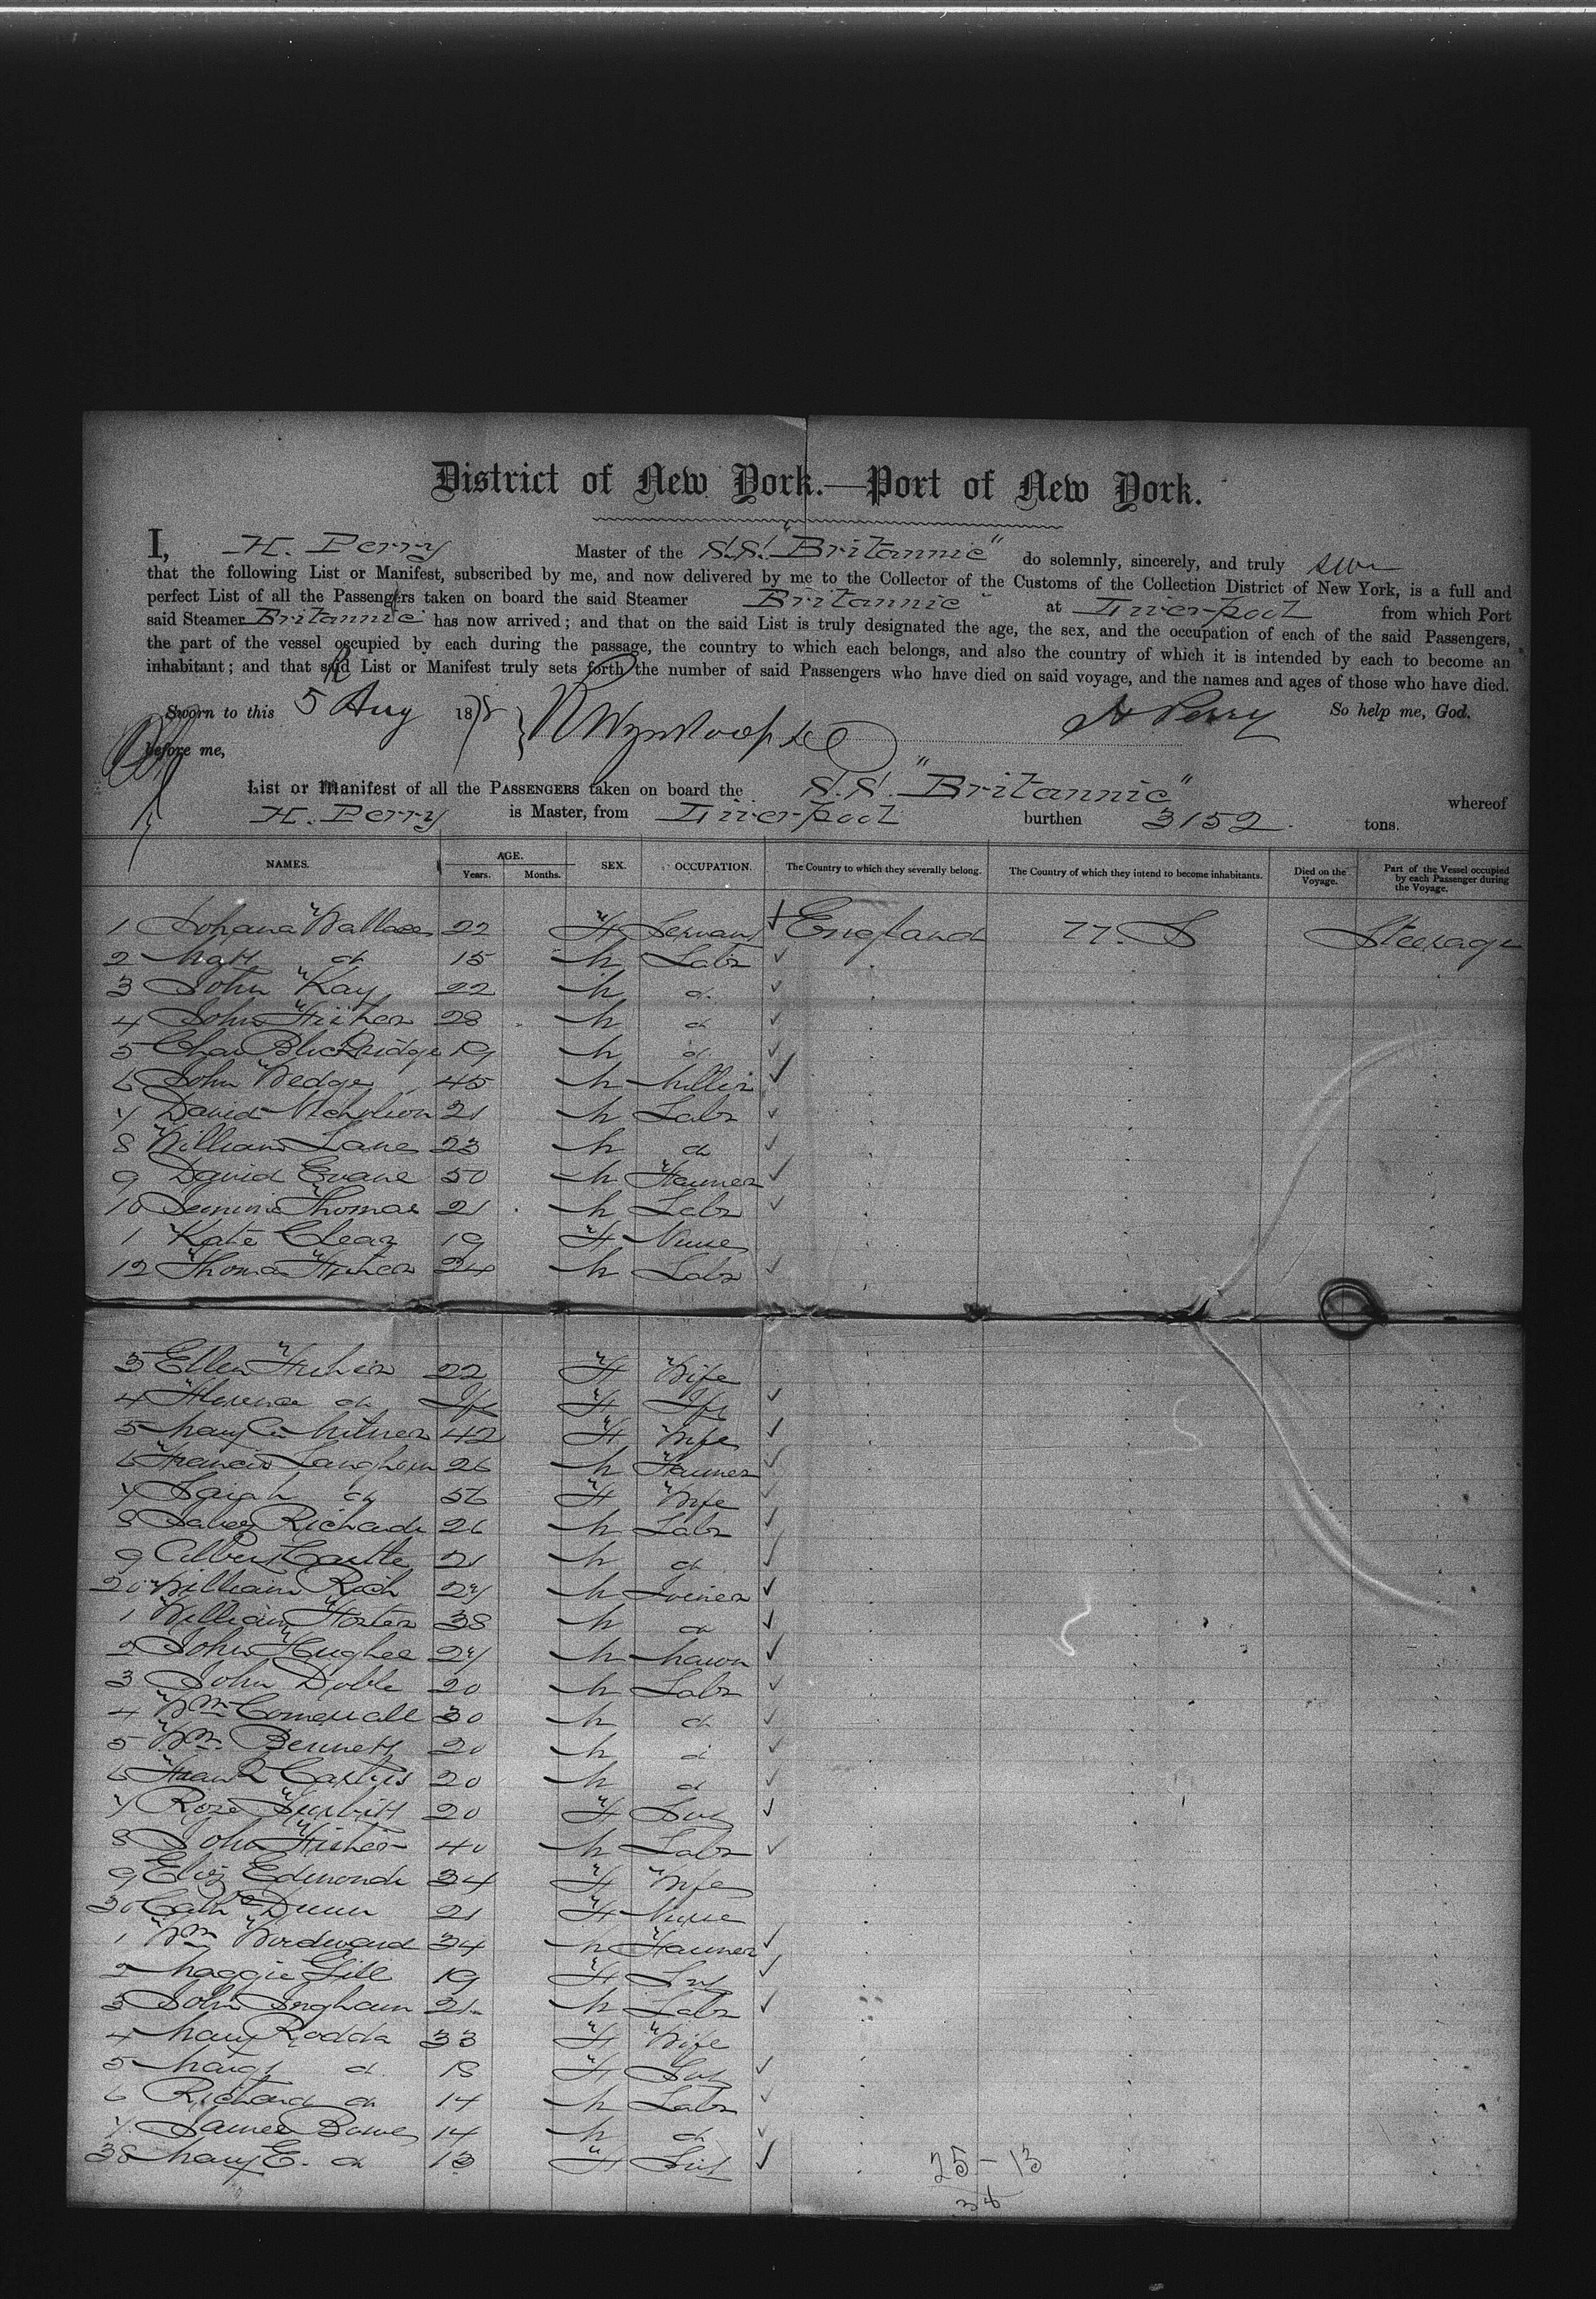 District of New York.—Port of New York.
I, H. Perry Master of the S.S. "Britannic" do solemnly, sincerely, and truly
that the following List or Manifest, subscribed by me, and now delivered by me to the Collector of the Customs of the Collection District of New York, is a full and
perfect List of all the Passengers taken on board the said Steamer Britannic" at Liverpool from which Port
said Steamer Britannic has now arrived; and that on the said List is truly designated the age, the sex, and the occupation of each of the said Passengers,
the part of the vessel occupied by each during the passage, the country to which each belongs, and also the country of which it is intended by each to become an
inhabitant; and that said List or Manifest truly sets forth the number of said Passengers who have died on said voyage, and the names and ages of those who have died.
Sworn to this 5 Aug 1878 H Perry So help me, God.
before me,
List or Manifest of all the PASSENGERS taken on board the S.S. "Britannic" whereof
H. Perry is Master, from Liverpool burthen 3152. tons.
NAMES. AGE. Years. Months. SEX. OCCUPATION. The Country to which they severally belong. The Country of which they intend to become inhabitants. Died on the Voyage. Part of the Vessel occupied by each Passenger during the Voyage.
1 Johana Wallace 22 F Servant England U.S Steerage
2 Matt do 15 M Labr
3 John Kay 22 M do
4 John 28 M do
5 Chas 19 M do
6 John Wedge 45 M Miller
7 David Nicholson 21 M Labr
8 William Lane 23 M do
9 David Evans 50 M Farmer
10 Thomas 21 M Labr
1 Kate Clear 19 F Nurse
12 Thomas Fisher 24 M Labr
3 Ellen Fisher 22 F Wife
4 Florence do Inft F Inft
5 Mary A. Milner 42 F Wife
6 Francis Langhorn 26 M Farmer
7 Sarah do 56 F Wife
8 Richards 26 M Labr
9 Albert Castle 21 M do
20 William Rich 27 M Joiner
1 William Foster 38 M do
2 John Hughes 27 M Mason
3 John Doble 20 M Labr
4 Wm 30 M do
5 Wm. Bennett 20 M do
6 Frank 20 M do
7 Rose 20 F Svt
8 John Fisher 40 M Labr
9 Eliz Edmonds 34 F Wife
30 Cathe Dunn 21 F Nurse
1 Wm Woodward 34 M Farmer
2 Maggie Gill 19 F Svt
3 John Ingham 21 M Labr
4 Mary Rodda 33 F Wife
5 Margt do 18 F Svt
6 Richard do 14 M Labr
7 James Bowe 14 M do
38 Mary E. do 13 F Svt
25 – 13
38